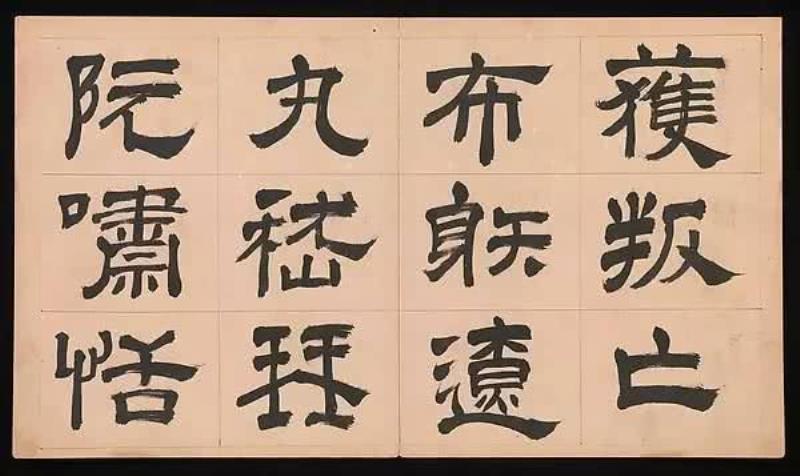 獲叛亡
布䠶遼
丸嵇琴
阮嘯恬